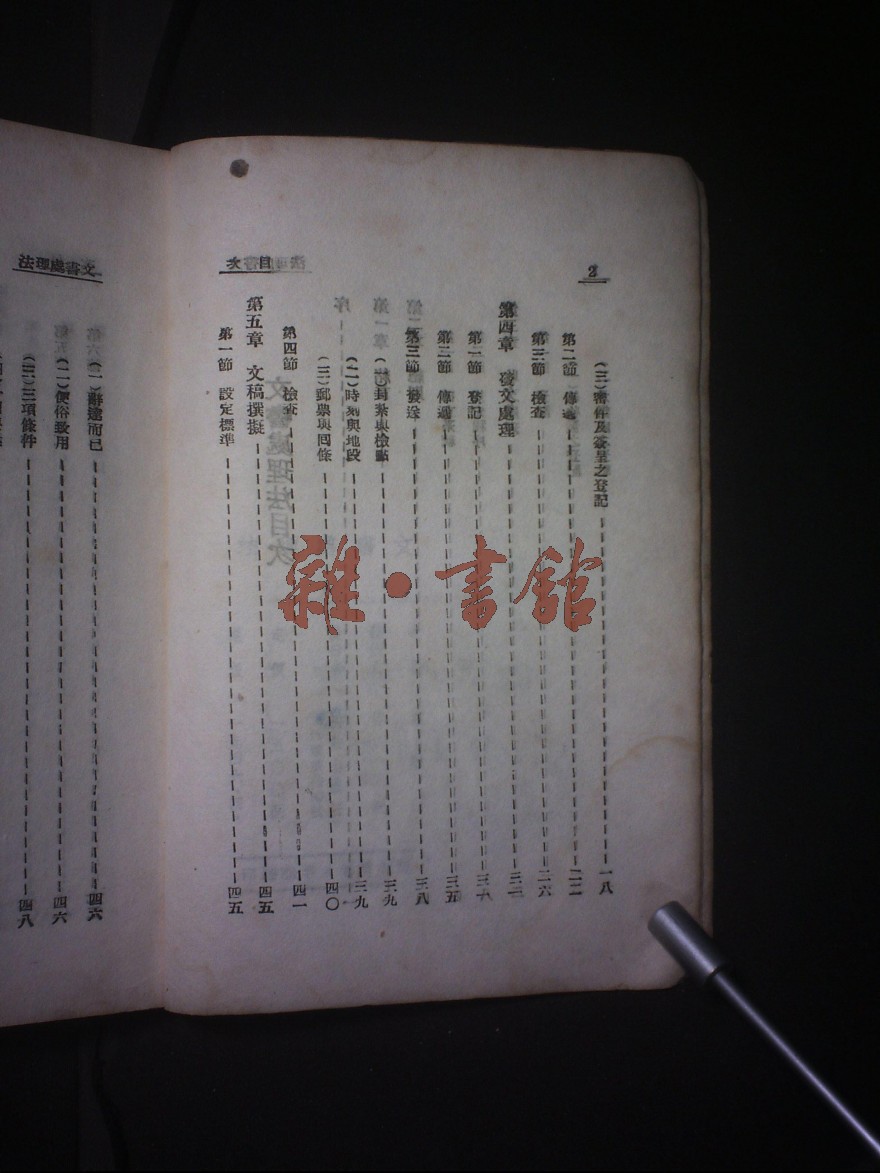 2
目次
(三)密件及簽呈之登記 一八
第二節 傳遞 二二
第三節 檢查 二六
第四章 發文處理
第一節 登記
第二節 傳遞 三五
第三節 發送 三八
(一)封紮與檢點 三九
(二)時刻與地段 三九
(三)郵票與回條 四〇
第四節 檢查 四一
第五章 文稿撰擬 四五
第一節 設定標準 四五
文書處理法
(一)辭達而已 四六
(二)便俗致用 四六
(三)三項條件 四八
雜·書館